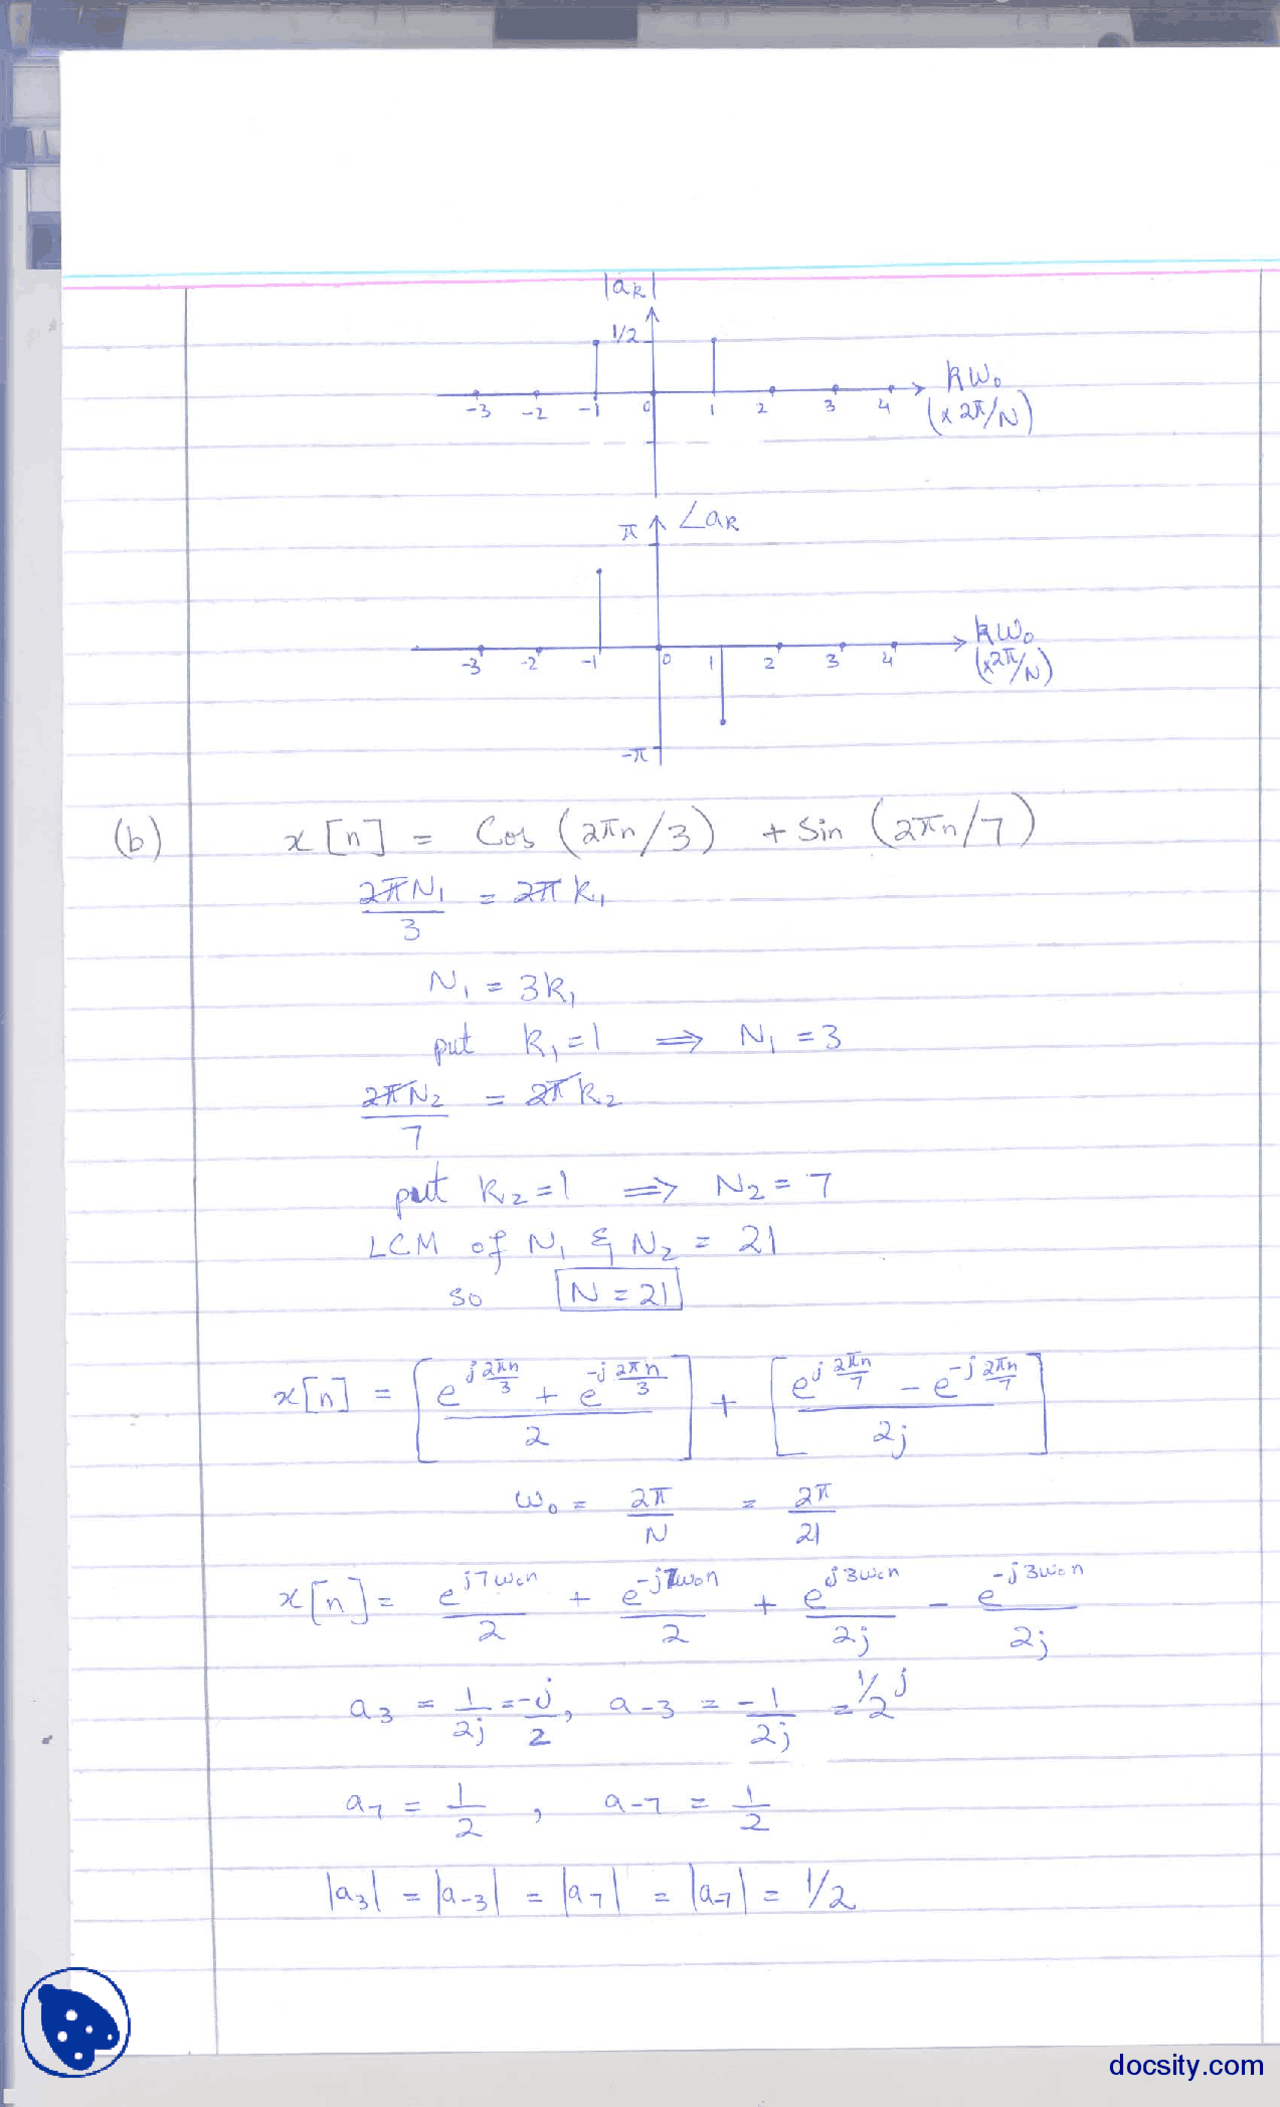 |aₖ|
1/2
kω₀
-3 -2 -1 0 1 2 3 4 (x 2π/N)
π ∠aₖ
kω₀
-3 -2 -1 0 1 2 3 4 (x2π/N)
-π
(b) x[n] = Cos (2πn/3) + Sin (2πn/7)
2πN₁/3 = 2π k₁
N₁ = 3k₁
put k₁=1 ⇒ N₁ = 3
2πN₂/7 = 2π k₂
put k₂=1 ⇒ N₂ = 7
LCM of N₁ & N₂ = 21
so N = 21
x[n] = [(e^(j2πn/3) + e^(-j2πn/3))/2] + [(e^(j2πn/7) - e^(-j2πn/7))/2j]
ω₀ = 2π/N = 2π/21
x[n] = e^(j7ω₀n)/2 + e^(-j7ω₀n)/2 + e^(j3ω₀n)/2j - e^(-j3ω₀n)/2j
a₃ = 1/2j = -j/2, a₋₃ = -1/2j = 1/2 j
a₇ = 1/2, a₋₇ = 1/2
|a₃| = |a₋₃| = |a₇| = |a₋₇| = 1/2
docsity.com